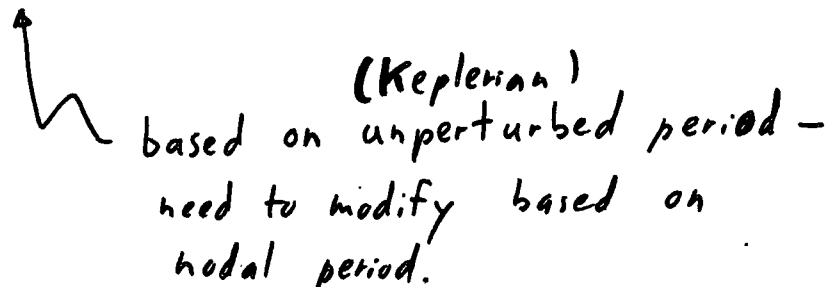 (Keplerian)
based on unperturbed period –
need to modify based on
nodal period.